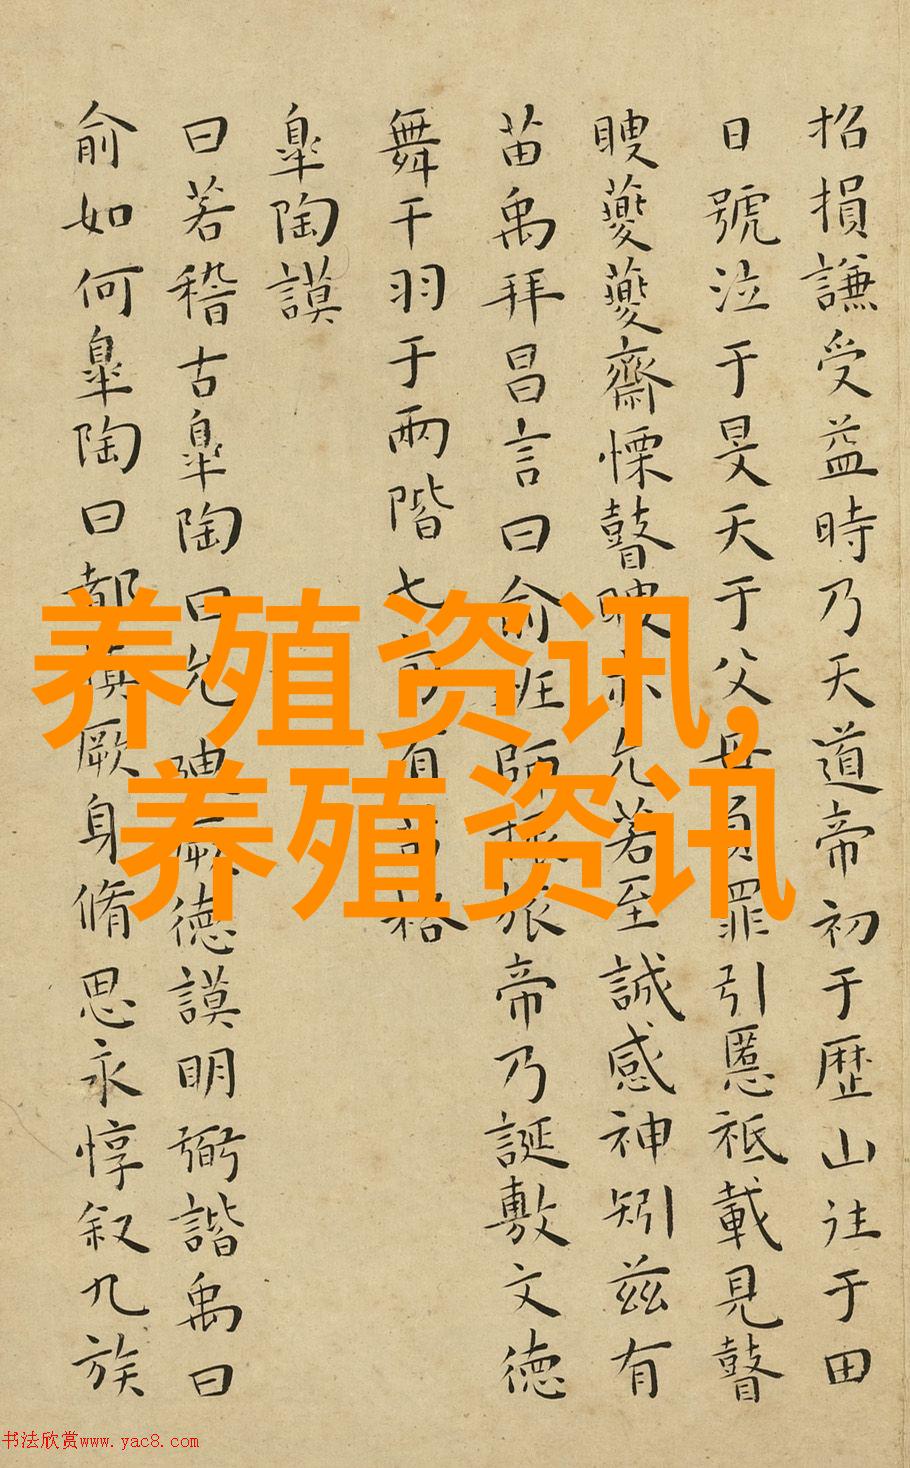 招損謙受益時乃天道帝初于歴山往于田
日號泣于旻天于父母負罪引慝祗載見瞽
瞍夔夔齋慄瞽瞍亦允若至諴感神矧兹有
苗禹拜昌言曰俞班師振旅帝乃誕敷文德
舞干羽于兩階七旬有苗格
皐陶謨
曰若稽古皐陶曰允迪厥德謨明弼諧禹曰
俞如何皐陶曰都慎厥身脩思永惇叙九族
养殖资讯,
养殖资讯
书法欣赏www.yac8.com